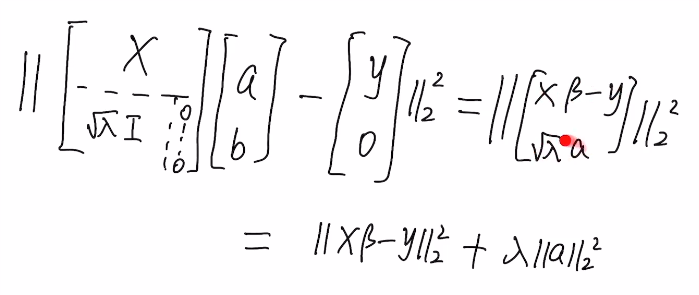 ‖ [ X ; √λ I 0 ⋮ 0 ] [ a ; b ] − [ y ; 0 ] ‖₂² = ‖ [ Xβ−y ; √λ a ] ‖₂²
= ‖Xβ−y‖₂² + λ‖a‖₂²